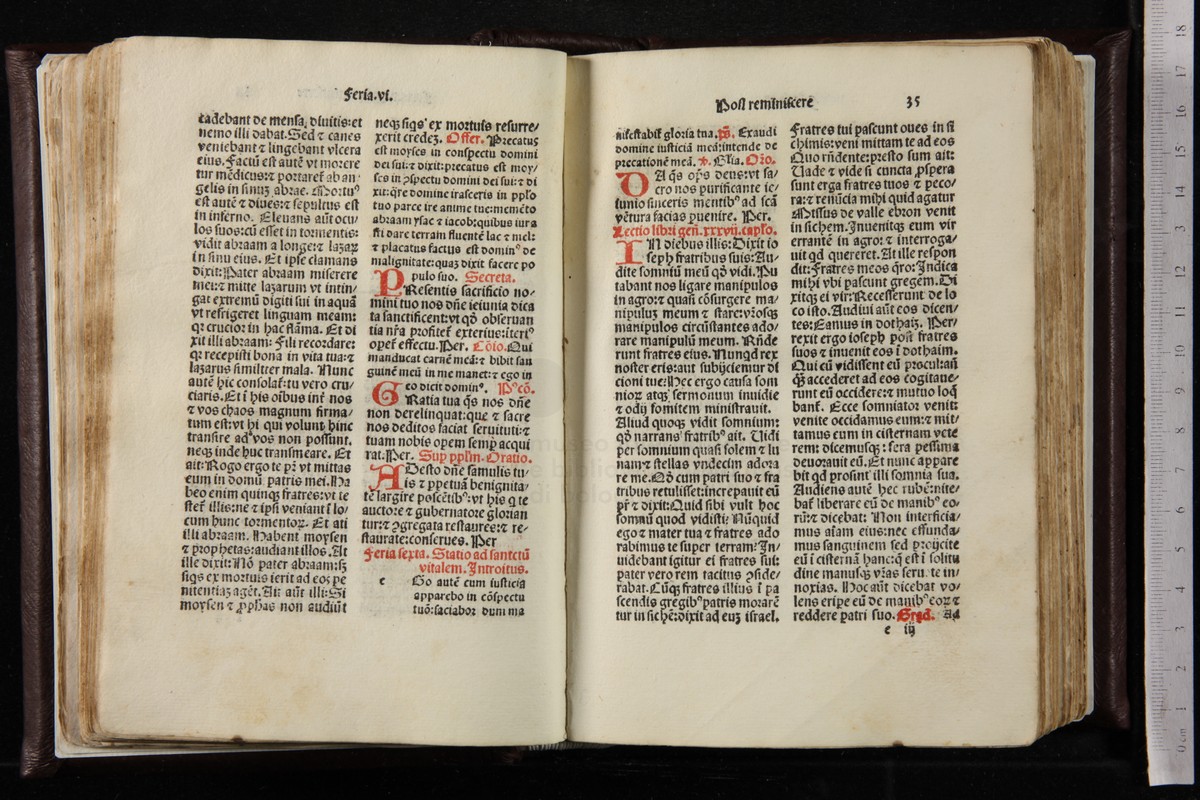 Feria.vi.
cadebant de mensa, diuitis:et
nemo illi dabat. Sed ⁊ canes
veniebant ⁊ lingebant vlcera
eius. Faciũ est autẽ vt morere
tur mẽdicus:⁊ portaret᷑ ab an
gelis in sinuȝ abrae. Mortuꝰ
est autẽ ⁊ diues:⁊ sepultus est
in inferno. Eleuans aũt ocu-
los suos:cũ esset in tormentis:
vidit abraam a longe:⁊ lazaꝝ
in sinu eius. Et ipse clamans
dixit:Pater abraam miserere
mei:⁊ mitte lazarum vt intin-
gat extremũ digiti sui in aquã
vt refrigeret linguam meam:
q: crucior in hac flãma. Et di
xit illi abraam: Fili recordare:
q: recepisti bona in vita tua:⁊
lazarus similiter mala. Nunc
autẽ hic consolat᷑:tu vero cru/
ciaris. Et ĩ his oĩbus int̃ nos
⁊ vos chaos magnum firma/
tum est:vt hi qui volunt hinc
transire ad vos non possunt.
neqȝ inde huc transmeare. Et
ait:Rogo ergo te pr̃ vt mittas
eum in domũ patris mei. Ha
beo enim quinqȝ fratres:vt te
stet᷑ illis:ne ⁊ ipsi veniant ĩ lo/
cum hunc tormentoꝝ. Et ait
illi abraam. Habent moysen
⁊ prophetas:audiant illos. At
ille dixit:Nõ pater abraam:sȝ
siqs ex mortuis ierit ad eos pe
nitentiaȝ agẽt. Ait aũt illi:Si
moysen ⁊ ꝓphas non audiũt
neqȝ siqs ex mortuis resurre/
xerit credeȝ. Offer. Precatus
est moyses in conspectu domini
dei sui:⁊ dixit:precatus est moy/
ses in ꝯspectu domini dei sui:⁊ di
xit:qre domine irasceris in pplo
tuo parce ire anime tue:memẽto
abraam ysac ⁊ iacob:quibus iura
sti dare terram fluentẽ lac ⁊ mel:
⁊ placatus factus est dominꝰ de
malignitate:quaȝ dixit facere po
pulo suo. Secreta.
PResentis sacrificio no-
mini tuo nos dñe ieiunia dica
ta sanctificent:vt qð obseruan
tia nr̃a profitet᷑ exterius:iteriꝰ
opet᷑ effectu. Per. Cõio. Qui
manducat carnẽ meã:⁊ bibit san
guinẽ meũ in me manet:⁊ ego in
eo dicit dominꝰ. Pꝰcõ.
GRatia tua qs nos dñe
non derelinquat:que ⁊ sacre
nos deditos faciat seruituti:⁊
tuam nobis opem semp acqui
rat. Per. Sup pplm. Oratio.
ADesto dñe famulis tu-
is ⁊ ppetuã benignita/
tẽ largire poscẽtibꝰ:vt his q te
auctore ⁊ gubernatore glorian
tur:⁊ ꝯgregata restaures:⁊ re-
staurata:conserues. Per
Feria sexta. Statio ad sanctũ
vitalem. Introitus.
e Go autẽ cum iusticia
apparebo in cõspectu
tuo:saciabor dum ma
Post reminiscere 35
nifestabit᷑ gloria tua. ps̃. Exaudi
domine iusticiã meã:intende de
precationẽ meã. ℣. Glia. Orõ.
DA qs op̃s deus:vt sa-
cro nos purificante ie-
iunio sinceris mentibꝰ ad scã
vẽtura facias puenire. Per.
Lectio libri geñ. xxxvij. caplo.
IN diebus illis: Dixit io
seph fratribus suis:Au-
dite somniũ meũ qð vidi. Pu
tabant nos ligare manipulos
in agro:⁊ quasi cõsurgere ma-
nipulũ meum ⁊ stare:vr̃osqȝ
manipulos circũstantes ado/
rare manipulũ meum. Rñde
runt fratres eius. Nunqd rex
noster eris:aut subijciemur di
cioni tue: Hec ergo causa som
nioꝝ atqȝ sermonum inuidie
⁊ odij fomitem ministrauit.
Aliud quoqȝ vidit somnium:
qð narrans fratribꝰ ait. Uidi
per somnium quasi solem ⁊ lu
nam:⁊ stellas vndecim adora
re me. Qð cum patri suo ⁊ fra
tribus retulisset:increpauit eũ
pr̃ ⁊ dixit:Quid sibi vult hoc
somniũ quod vidisti: Nũquid
ego ⁊ mater tua ⁊ fratres ado
rabimus te super terram: In-
uidebant igitur ei fratres sui:
pater vero rem tacitus ꝯside/
rabat. Cũqȝ fratres illius ĩ pa
scendis gregibꝰ patris morarẽ
tur in sichẽ:dixit ad euȝ israel.
Fratres tui pascunt oues in si
chimis:veni mittam te ad eos
Quo rñdente:presto sum ait:
Uade ⁊ vide si cuncta ꝓspera
sunt erga fratres tuos ⁊ peco/
ra:⁊ renũcia mihi quid agatur
Missus de valle ebron venit
in sichem. Inuenitqȝ eum vir
errantẽ in agro:⁊ interroga/
uit qd quereret. At ille respon
dit:Fratres meos qro:Indica
mihi vbi pascunt gregem. Di
xitqȝ ei vir:Recesserunt de lo
co isto. Audiui aũt eos dicen/
tes:Eamus in dothaiȝ. Per/
rexit ergo ioseph post fratres
suos ⁊ inuenit eos ĩ dothaim.
Qui cũ vidissent eũ procul:añ
q̃ȝ accederet ad eos cogitaue/
runt eũ occidere:⁊ mutuo loq̃
bant᷑. Ecce somniator venit:
venite occidamus eum:⁊ mit/
tamus eum in cisternam vete
rem: dicemusqȝ: fera pessima
deuorauit eũ. Et tunc appare
bit qd prosint illi somnia sua.
Audiens autẽ hec rubẽ:nite/
bat᷑ liberare eũ de manibꝰ eo/
rũ:⁊ dicebat: Non interficia/
mus aĩam eius:nec effunda/
mus sanguinem sed proijcite
eũ ĩ cisternã hanc:q̃ est ĩ solitu
dine manusqȝ vr̃as seru te in-
noxias. Hoc aũt dicebat vo/
lens eripe eũ de manibꝰ eoꝝ ⁊
reddere patri suo. Grad. Ad
e iij